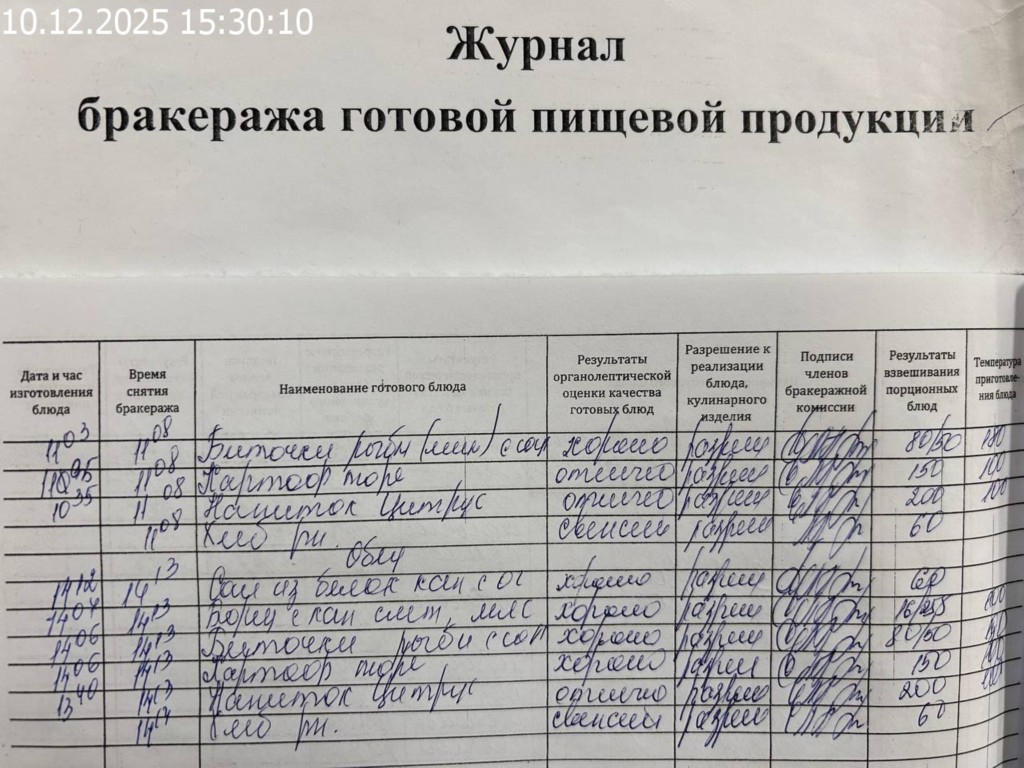 10.12.2025 15:30:10
Журнал
бракеража готовой пищевой продукции
Дата и час изготовления блюда
Время снятия бракеража
Наименование готового блюда
Результаты органолептической оценки качества готовых блюд
Разрешение к реализации блюда, кулинарного изделия
Подписи членов бракеражной комиссии
Результаты взвешивания порционных блюд
Температура приготовле-ния блюда
11 03 11 08 Биточки рыбн хорошо разреш 80/50
11 08 Картоф пюре отлично разреш 150 100
10 35 11 08 Напиток цитрус отлично разреш 200 100
11 08 Хлеб рж. разреш 60
Обед
14 12 14 13 Сал из белок кап с ог хорошо разреш 60
14 07 14 13 Борщ с кап смет мяс хорошо разреш
14 06 14 13 Биточки рыбн хорошо разреш 80/50
14 06 14 13 Картоф пюре хорошо разреш 150
13 40 14 13 Напиток цитрус отлично разреш 200
Хлеб рж. разреш 60